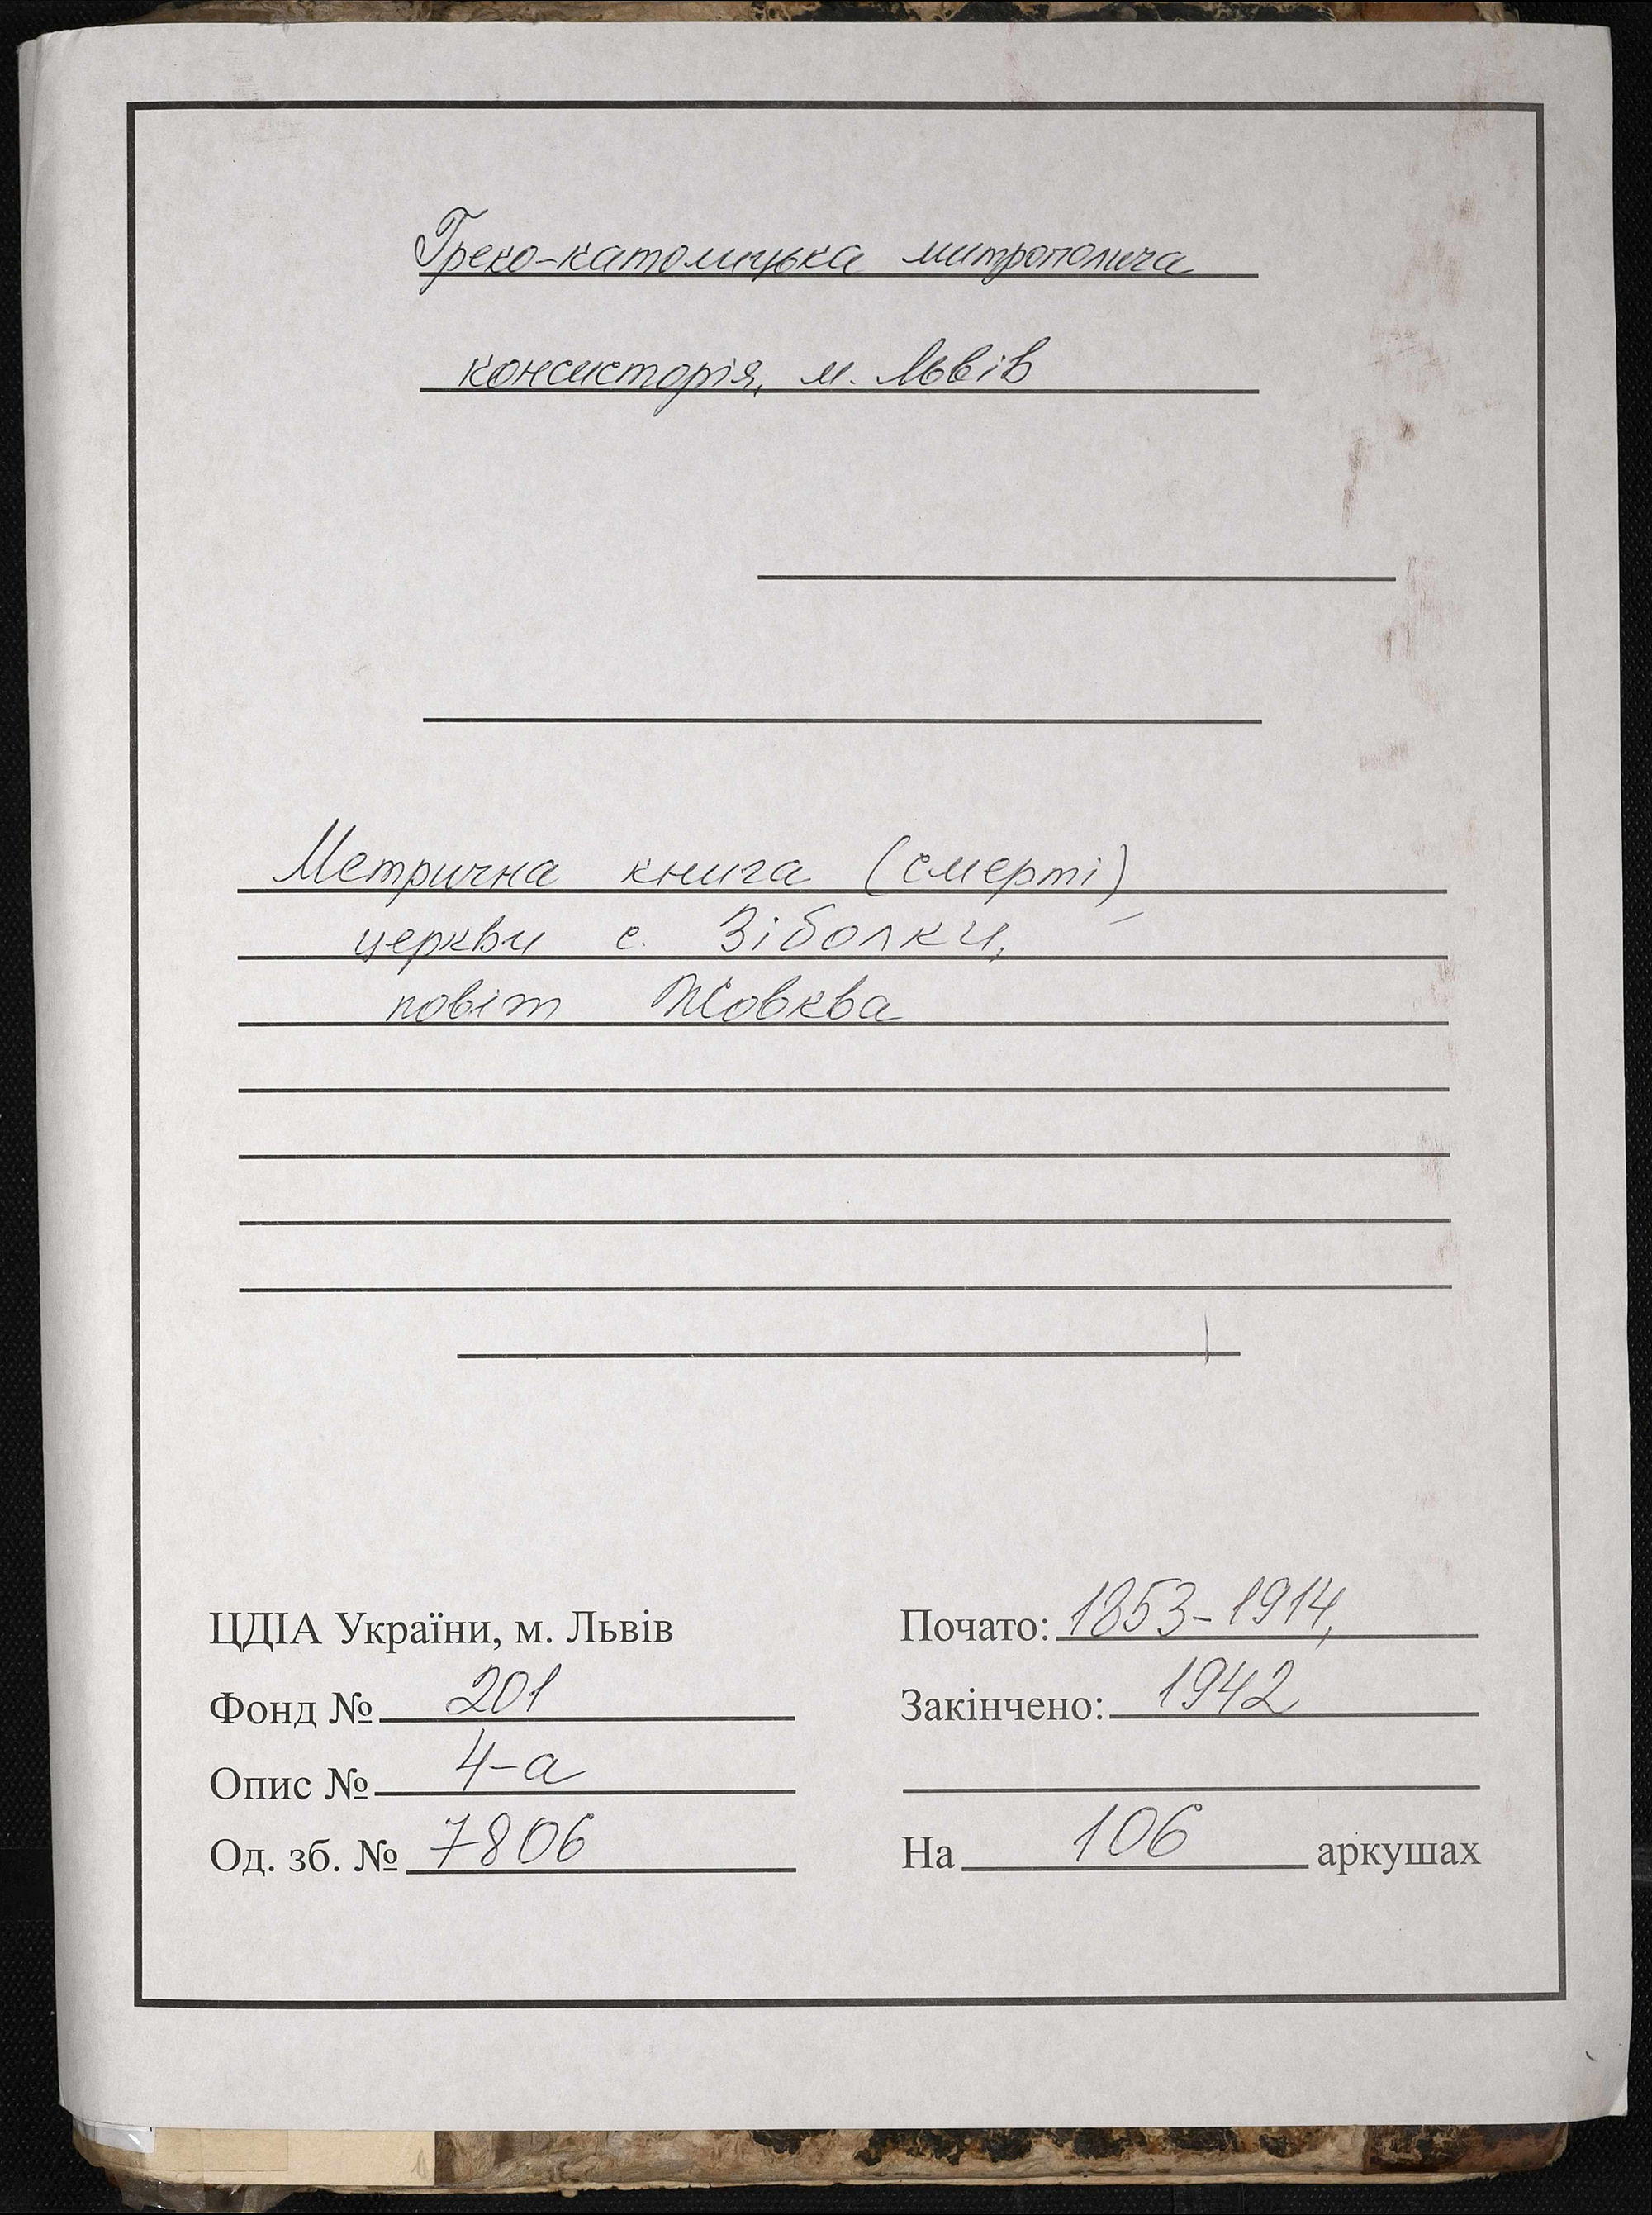 Греко-католицька митрополича
консисторія, м. Львів
Метрична книга (смерті)
церкви с. Зіболки,
повіт Жовква
ЦДІА України, м. Львів
Фонд № 201
Опис № 4-а
Од. зб. № 7806
Почато: 1853-1914,
Закінчено: 1942
На 106 аркушах